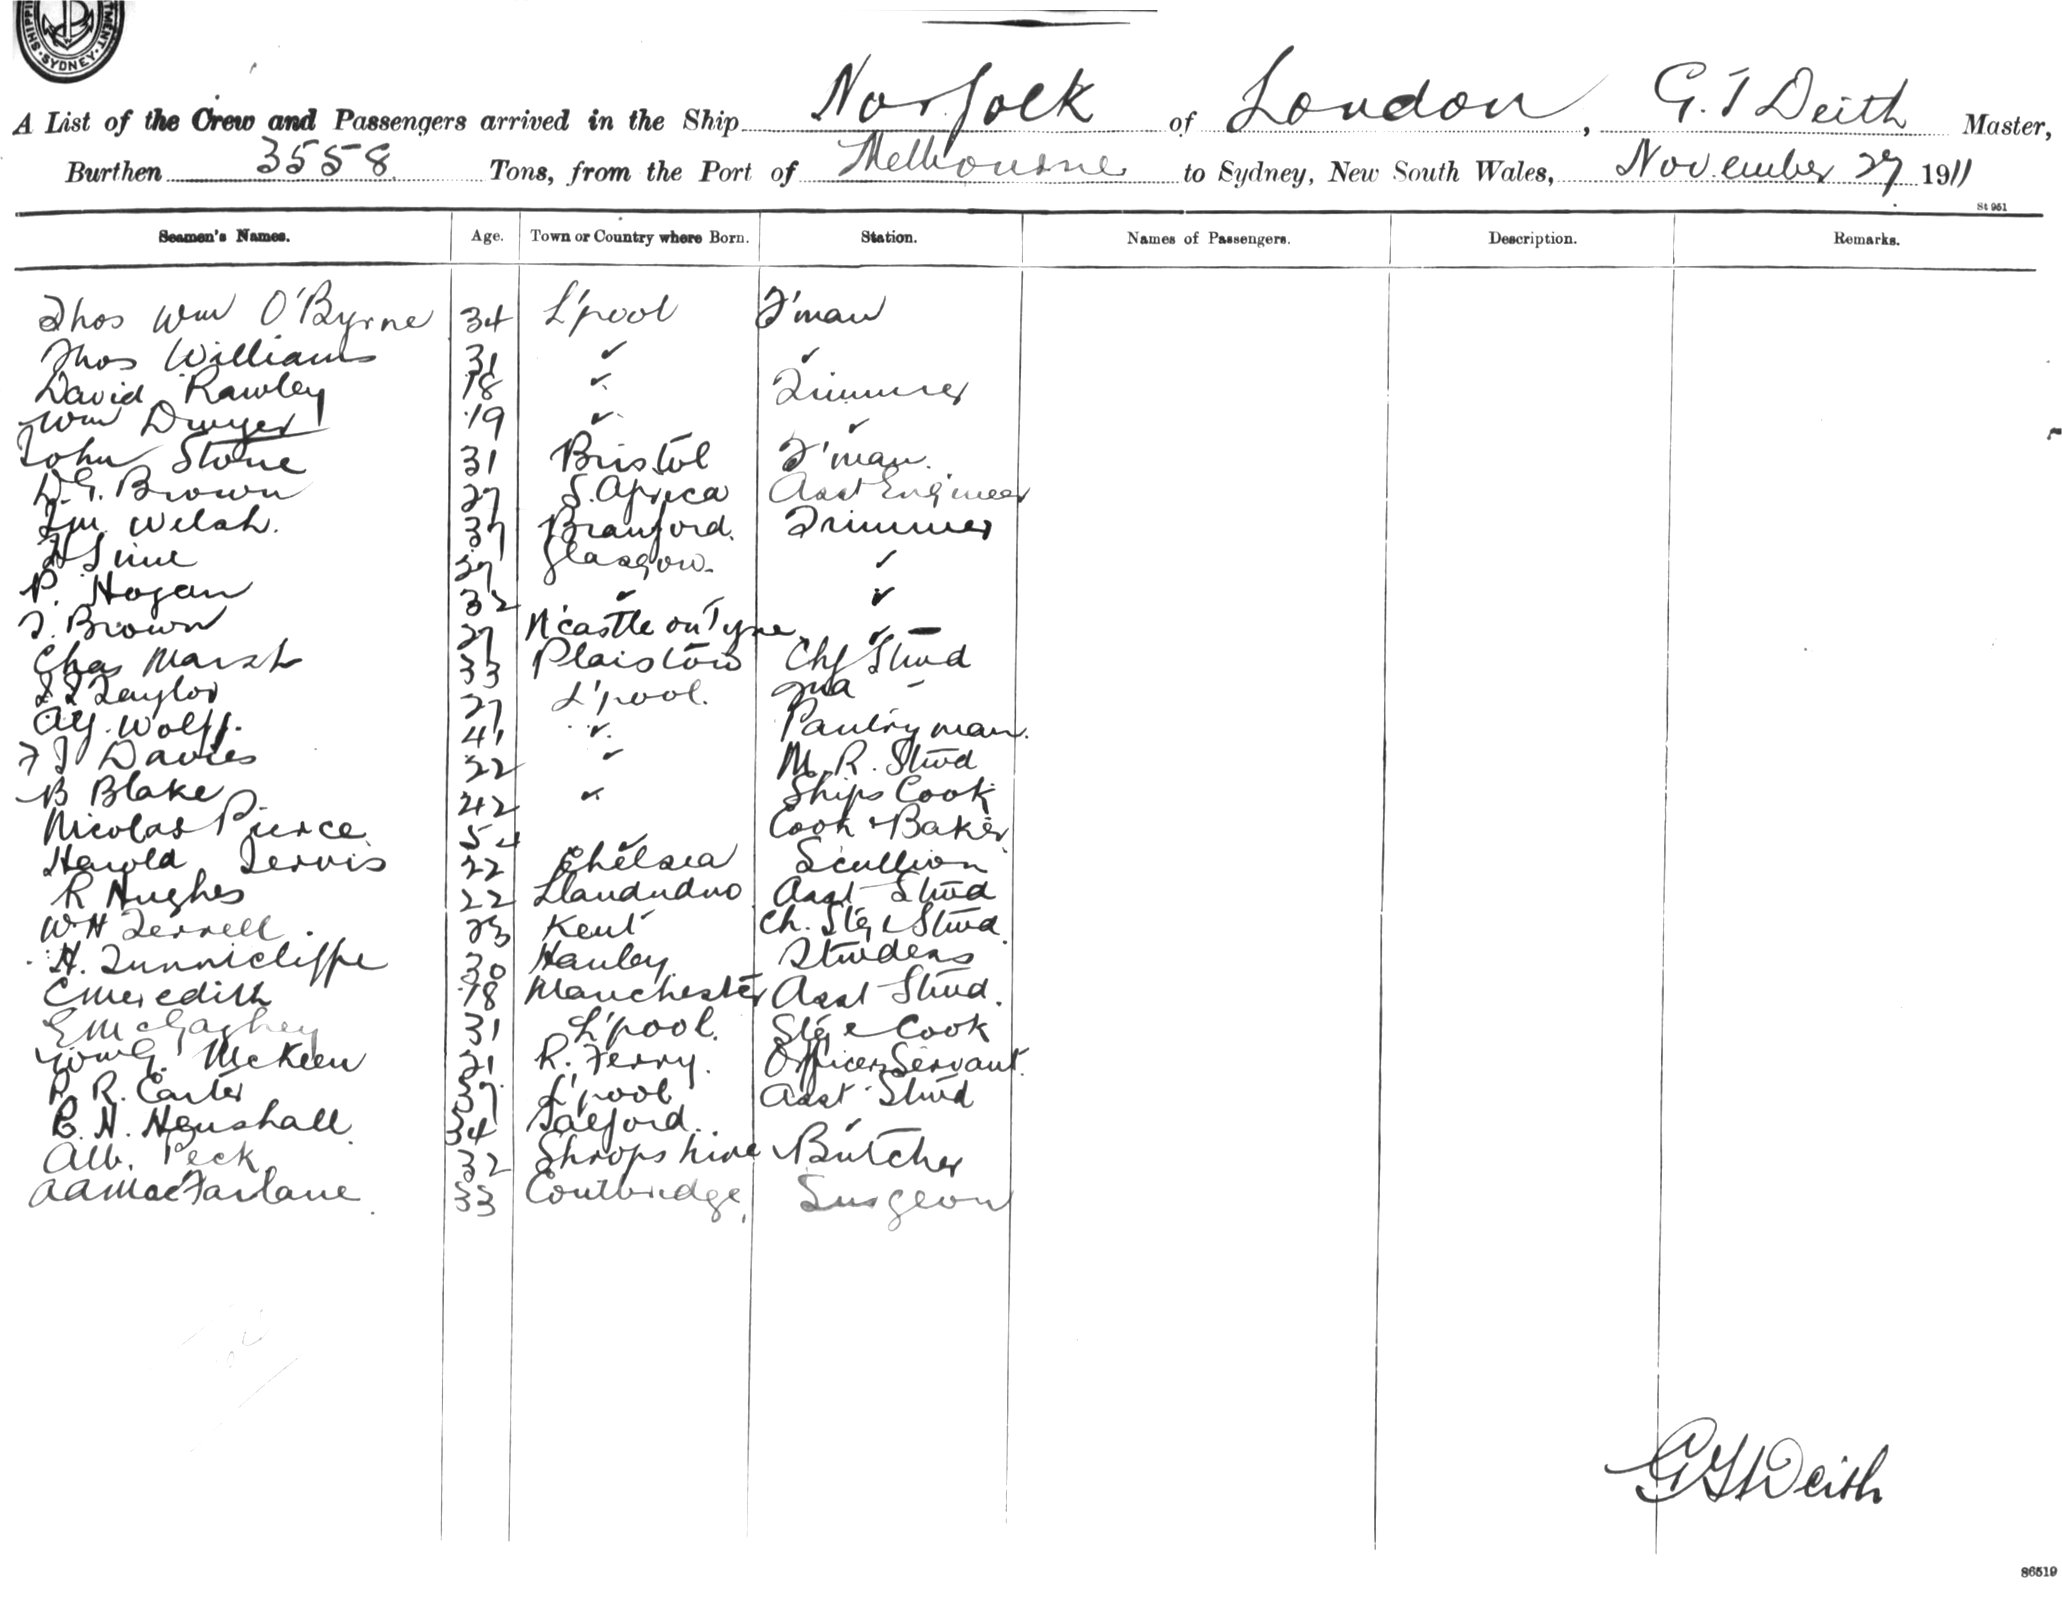 SHIPPI
TMENT
SYDNEY
A List of the Crew and Passengers arrived in the Ship Norfolk of London, G. T Deith Master,
Burthen 3558 Tons, from the Port of Melbourne to Sydney, New South Wales, November 27 1911
St 951
Seamen's Names. Age. Town or Country where Born. Station. Names of Passengers. Description. Remarks.
Thos Wm O'Byrne 34 L'pool F'man
Thos Williams 31 ✓ ✓
David Rawley 18 ✓ Trimmer
Wm Dwyer 19 ✓ ✓
John Stone 31 Bristol F'man.
D. G. Brown 27 S. Africa Asst Engineer
Welsh. 37 Branford. Trimmer
Glasgow. ✓
P. Hogan 32 ✓ ✓
T. Brown 27 N'castle on Tyne ✓
Chas Marsh 33 Plaistow Chf Stwd
Taylor 27 L'pool. 2nd -
Alf. Wolff. 41 ✓ Pantryman.
F J Davies 22 ✓ M. R. Stwd
B Blake 42 ✓ Ships Cook
Nicolas Pierce ✓ Cook & Baker
Harold Jervis 22 Chelsea Scullion
R Hughes 22 Llandudno Asst Stwd
W H Terrell. 23 Kent Ch. Stge Stwd.
H. Tunnicliffe 30 Hanley Stwdess
C Meredith 18 Manchester Asst Stwd.
E McGaghey 31 L'pool. Stge Cook
McKeen 21 R. Ferry. Officers Servant.
R. Carter 37 L'pool Asst Stwd
C. H. Henshall 34 Salford. ✓
Alb. Peck 32 Shropshire Butcher
A A MacFarlane 33 Coatbridge Surgeon
G T Deith
86519